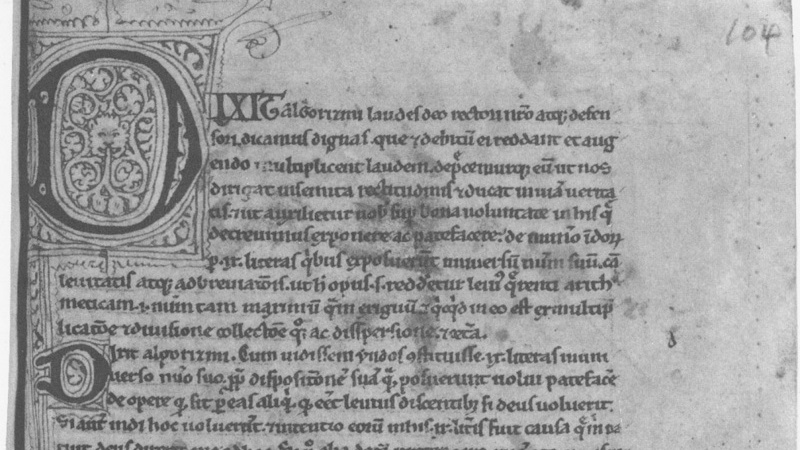 104
DIXIT algorizmi laudes deo rectori nr̄o atq; defen
sori, dicamus dignas. que & debitū ei reddant et aug
endo multiplicent laudem. dep̄cemurq; eū ut nos
dirigat in semita rectitudinis & ducat in uiā uerita
tis. & ut auxilietur nob̄ sup̄ bona uoluntate in his q̄
decreuimus exponere ac patefacere: de num̄o īdoꝝ
p̱. ıx. literas q̄bus exposuerūt uniuersū num̄ suū. cā
leuitatis atq; adbreuiatōis. ut h̄ opus. s. redderetur leui' q̄renti arith
meticam. i. num̄ tam maximū q̄m exiguū. & q̄cq̄d in eo est ex multip̄
licatōe & diuisione collectōe q̄; ac disp̄ersione. & cetā.
Dixit algorizmi. Cum uidissem yndos ɔstituisse .ıx. literas in uni
uerso num̄o suo. p̱p̄ dispositōnē suā q̄ posuerunt uolui patefac̄e
de opere q̄ fit p̱ eas aliq̄. q̄ ēet leuius discentib; si deus uoluerit.
Si aut̄ indi hoc uoluer̄t. & intentio eorū in his .ıx. litīs fuit causa